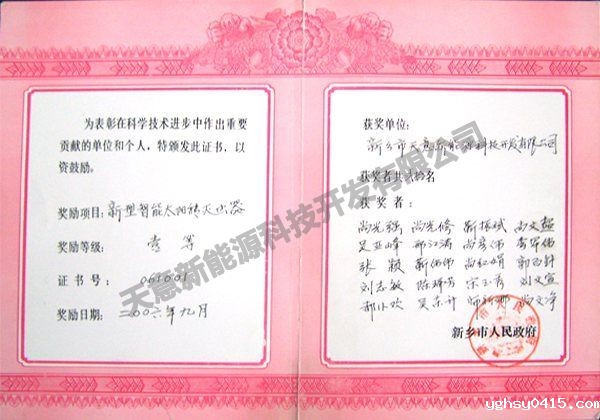 为表彰在科学技术进步中作出重要
贡献的单位和个人，特颁发此证书，以
资鼓励。
奖励项目：新型智能太阳能灭虫器
奖励等级：壹等
证书号：061001
奖励日期：二00六年九月
获奖单位：
新乡市天意新能源科技开发有限公司
获奖者共 名
获奖者：
尚光强 尚光修 靳振斌 尚文超
吴亚峰
张颖 靳伟伟 尚红娟
刘志敏 陈 宋玉秀 刘文宣
吴东升 尚文净
新乡市人民政府
天意新能源科技开发有限公司
yghsy0415.com